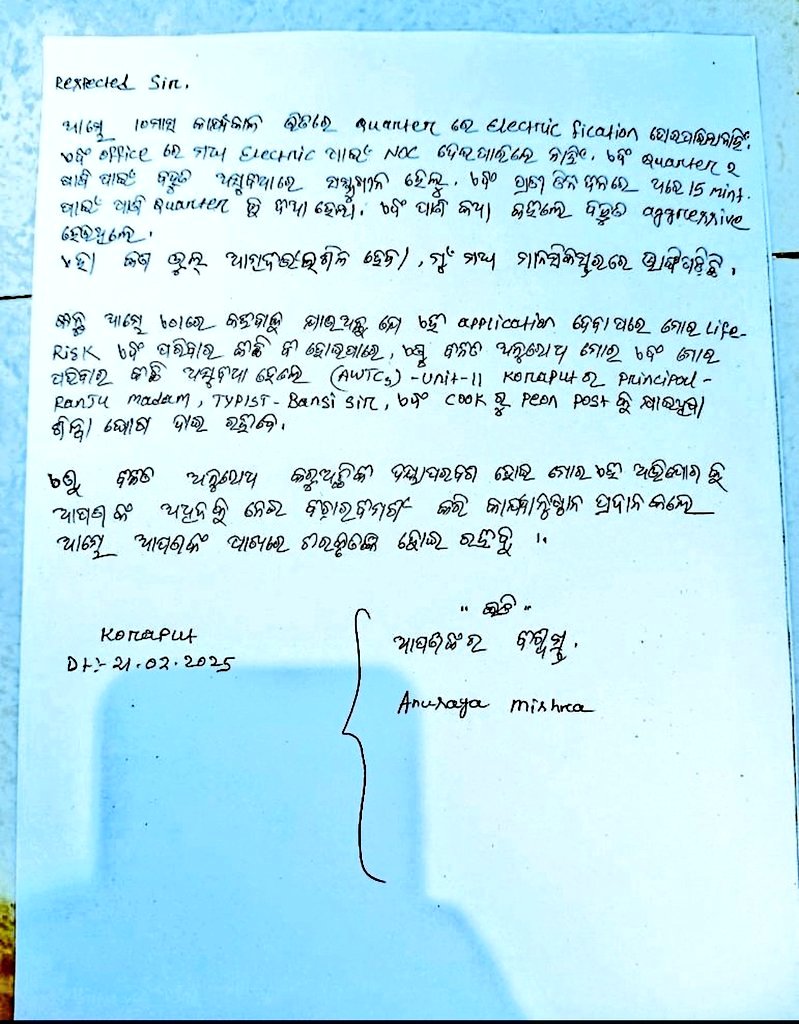 Respected Sir.
ଆମ୍ଭେ 10ମାସ କାର୍ଯ୍ୟକାଳ ଭିତରେ Quarter ରେ Electric fication ହୋଇପାରିଲାନାହିଁ.
ଏବଂ office ରେ ମଧ୍ୟ Electric ପାଇଁ NOC ଦେଇପାରିଲେ ନାହିଁ. ଏବଂ Quarter ର
ପାଣି ପାଇଁ ବହୁତ ଅସୁବିଧାରେ ସମ୍ମୁଖୀନ ହେଲୁ. ଏବଂ ପ୍ରାୟ ତିନି ଦିନରେ ଥରେ 15 mint.
ପାଇଁ ପାଣି Quarter କୁ ଦିଆ ହେଲା. ଏବଂ ପାଣି କଥା କହିଲେ ବହୁତ aggressive
ହେଉଥିଲେ.
ଏହା କଣ ଭୁଲ୍ ମୁଁ ମଧ୍ୟ ମାନସିକସ୍ତରରେ ଭାଙ୍ଗିପଡ଼ିଛି.
କିନ୍ତୁ ଆମ୍ଭେ ଏଠାରେ କହିବାକୁ ଯାଉଅଛୁ ଯେ ଏହି application ଦେବା ପରେ ମୋର Life-
Risk ଏବଂ ପରିବାର କିଛି ବି ହୋଇପାରେ, ଏଣୁ ବିନୀତ ଅନୁରୋଧ ମୋର ଏବଂ ମୋର
ପରିବାର କିଛି ଅସୁବିଧା ହେଲେ (AWTCs) - Unit-II Koraput ର Principal -
Ranju madam, TYPIST - Bansi sir, ଏବଂ COOK ରୁ Peon Post କୁ ଯାଇଥିବା
ଘୋଷ ଦାଇ ରହିବେ.
ଏଣୁ ବିନୀତ ଅନୁରୋଧ କରୁଅଛି କି ଦୟାପରବଶ ହୋଇ ମୋର ଏହି ଅଭିଯୋଗ କୁ
ଆପଣ ଙ୍କ ଅଧିନ କୁ ନେଇ ବିଚାରବିମର୍ଶ କରି କାର୍ଯ୍ୟାନୁଷ୍ଠାନ ପ୍ରଦାନ କଲେ
ଆମ୍ଭେ ଆପଣଙ୍କ ପାଖରେ ଚିରକୃତଜ୍ଞ ହୋଇ ରହିବୁ ।.
" ଇତି "
Koraput
ଆପଣଙ୍କର ବିଶ୍ୱସ୍ତ.
Dt:- 21.02.2025
Anusaya Mishra